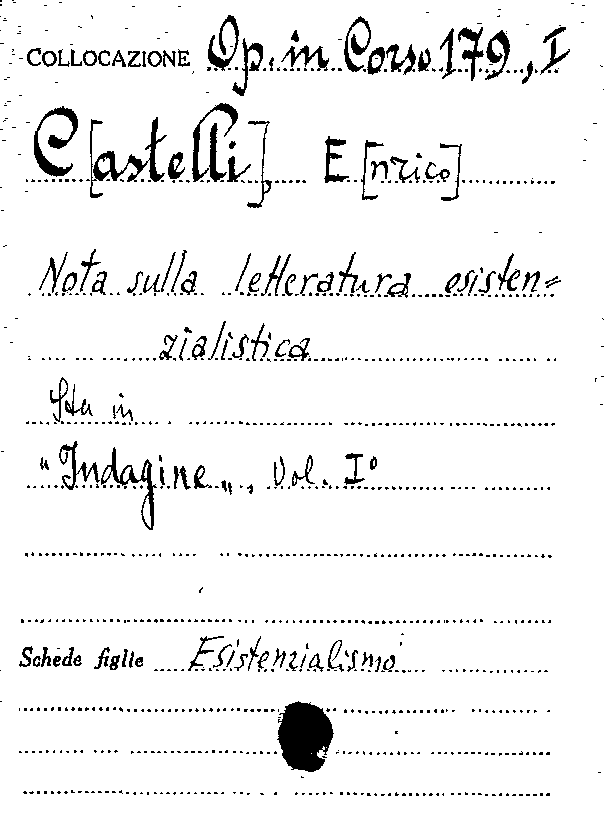 COLLOCAZIONE Op. in Corso 179, I
C[astelli], E[nrico]
Nota sulla letteratura esisten=
zialistica
Sta in
"Indagine", Vol. I°
Schede figlie Esistenzialismo